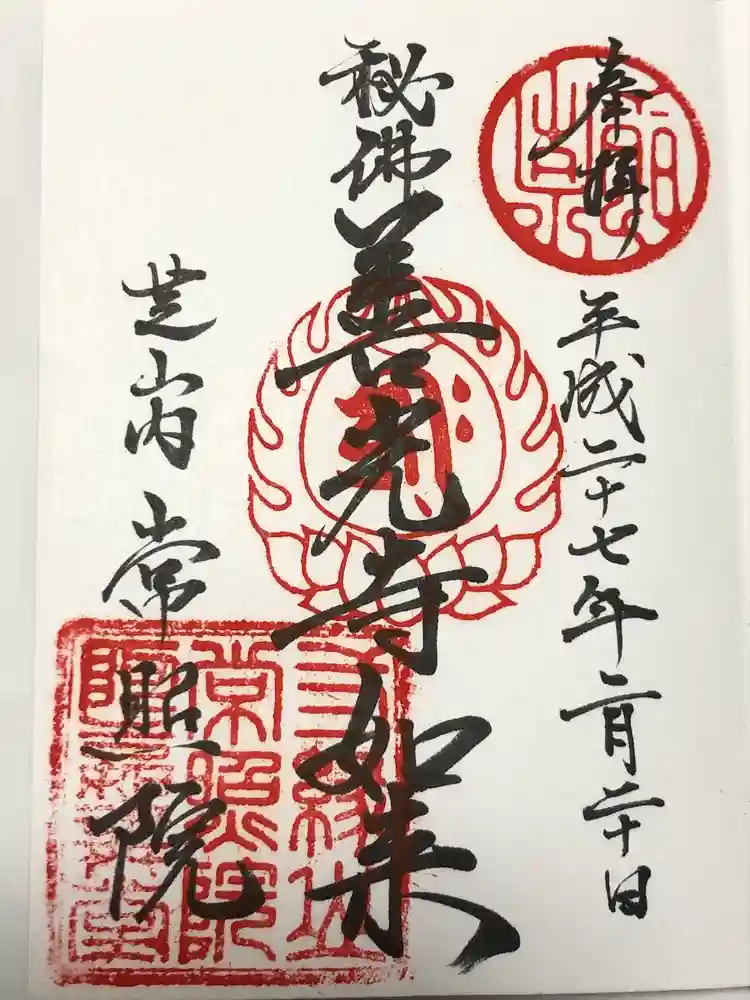 奉拝
平成二十七年二月二十日
秘佛
善光寺如来
芝山内
常照院
三縁山
常照院